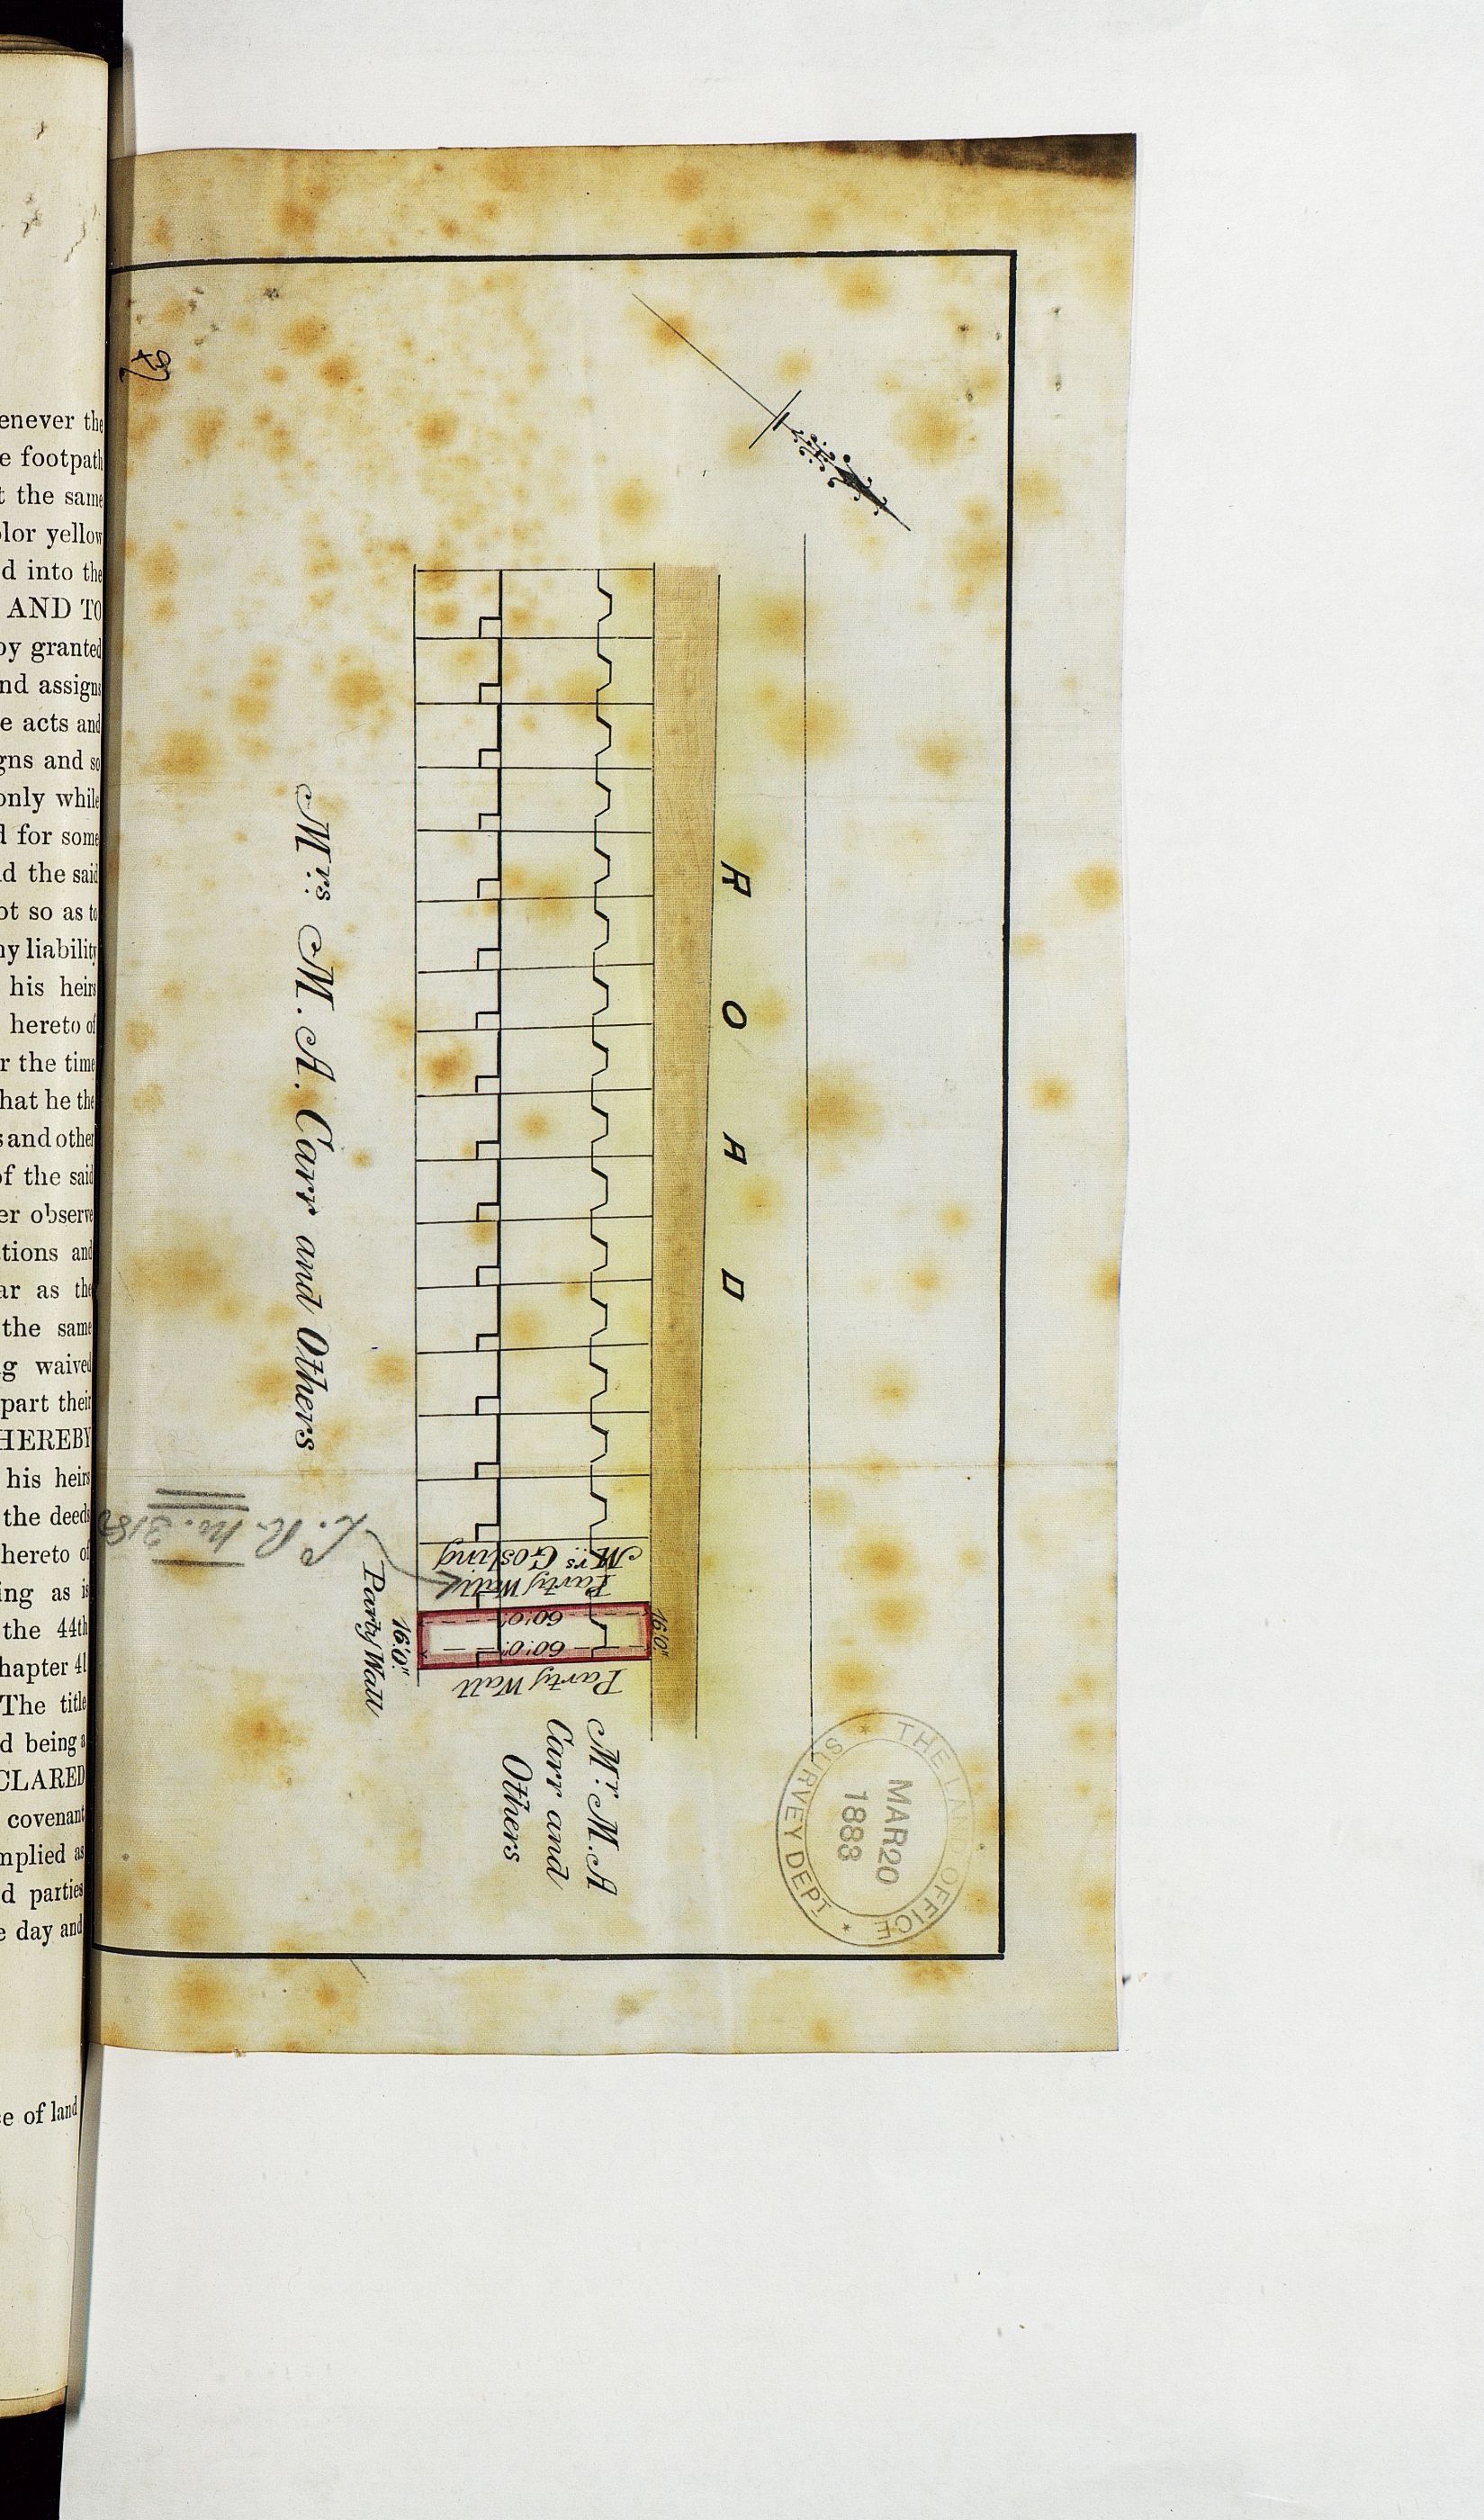 enever the
e footpath
t the same
olor yellow
d into the
AND TO
by granted
nd assigns
e acts and
gns and so
only while
d for some
d the said
ot so as to
ny liability
his heirs
hereto of
r the time
hat he the
s and other
of the said
er observe
tions and
ar as the
the same
g waived
part their
HEREBY
his heirs
the deeds
hereto of
ing as is
the 44th
hapter 41
The title
d being a
CLARED
covenant
mplied as
d parties
e day and
e of land
ROAD
Mrs. M. A. Carr and Others
Mrs. Gosling
Party Wall
16'.0"
60'.0"
60'.0"
16'.0"
Party Wall
Party Wall
Mr. M. A
Carr and
Others
L. R. M. 318
THE LAND OFFICE
MAR 20
1883
SURVEY DEPT.